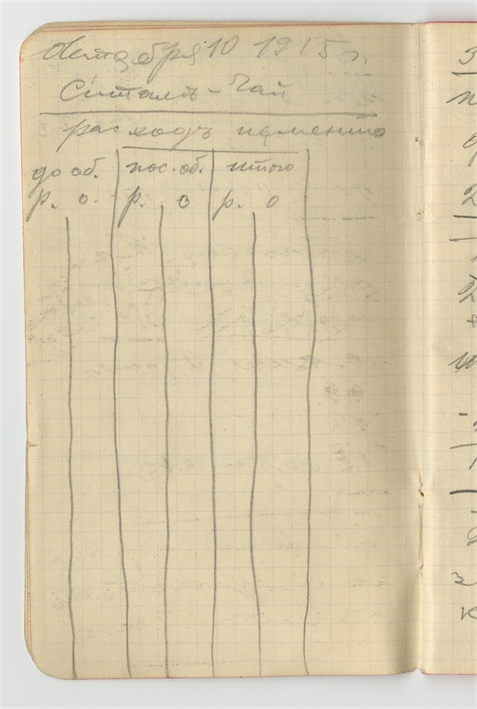 Октября 10 1915 г.
Ситаль-Чай
расходъ
до об. пос. об. итого
р. о. р. о р. о